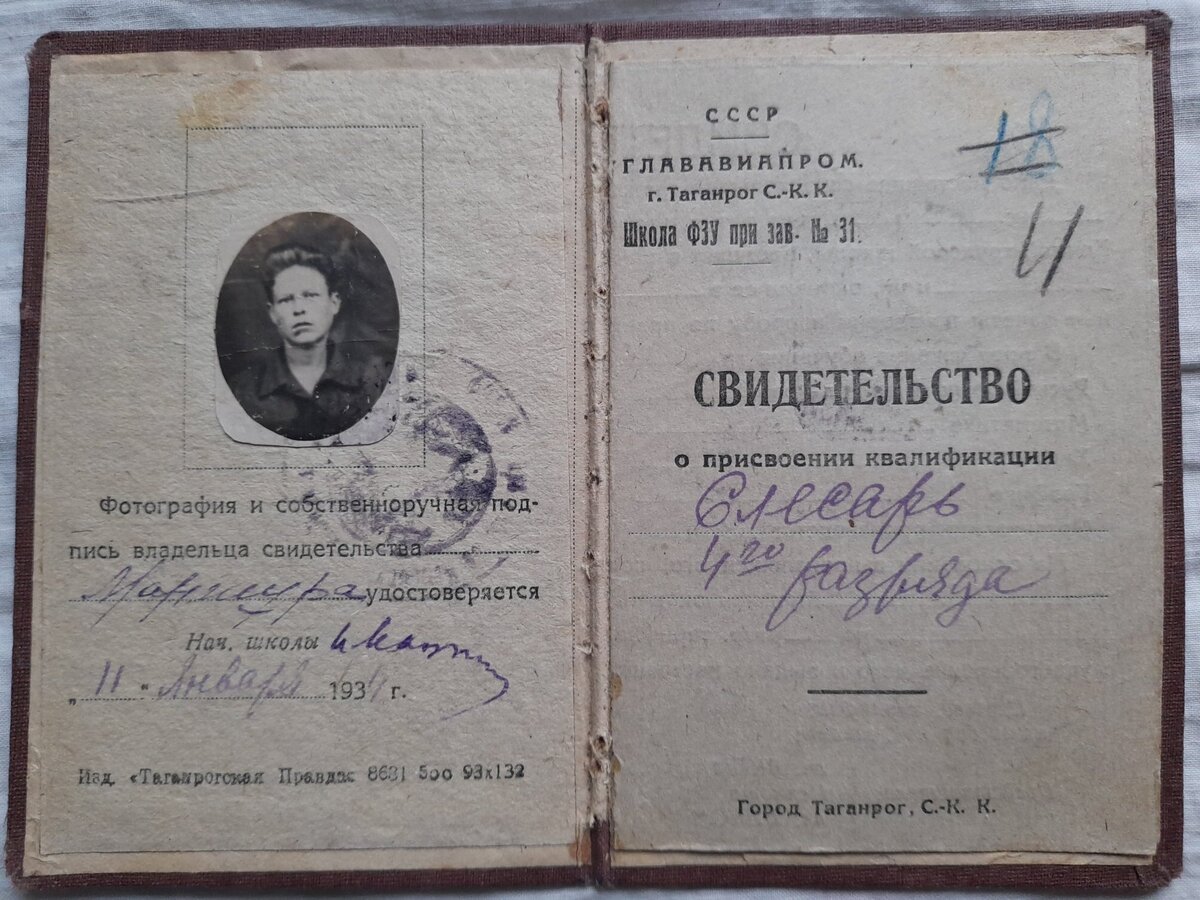 Фотография и собственноручная под-
пись владельца свидетельства
удостоверяется
Нач. школы
„ 11 " Января 1934 г.
Изд. «Таганрогская Правда» 8631 500 93х132
СССР
ГЛАВАВИАПРОМ.
г. Таганрог С.-К. К.
Школа ФЗУ при зав. № 31.
18
СВИДЕТЕЛЬСТВО
о присвоении квалификации
Слесарь
4го разряда
Город Таганрог, С.-К. К.